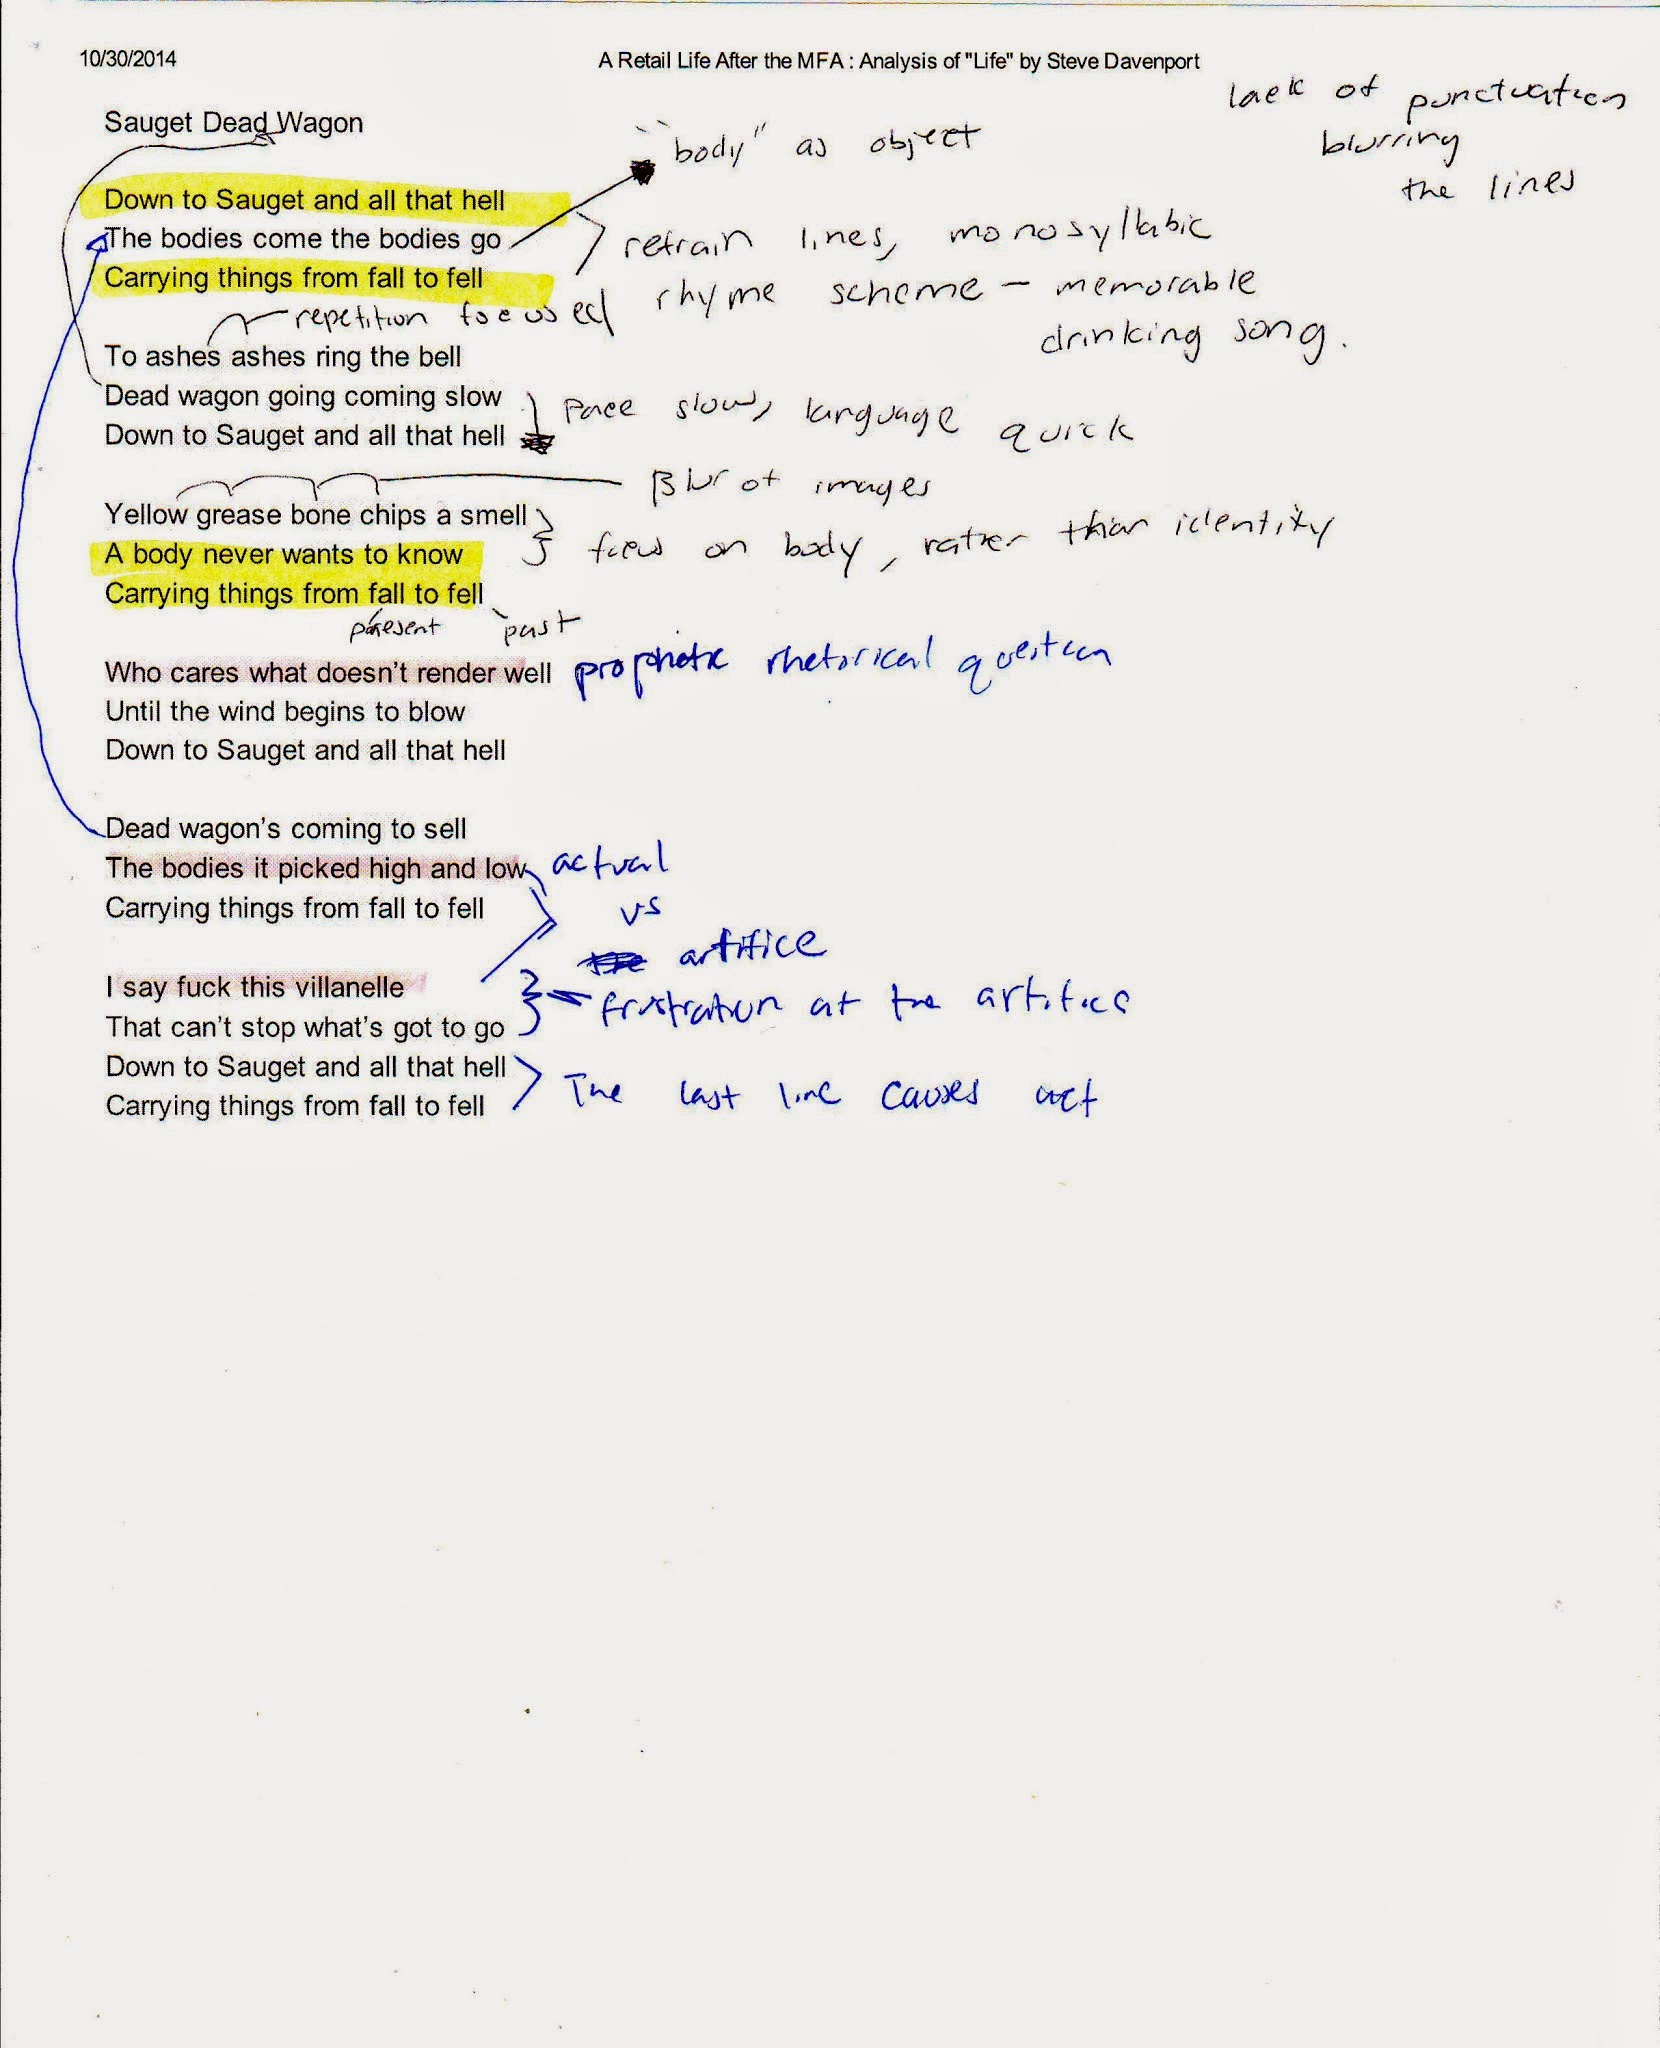 10/30/2014 A Retail Life After the MFA : Analysis of "Life" by Steve Davenport
lack of punctuation
blurring
the lines
Sauget Dead Wagon
"body" as object
Down to Sauget and all that hell
The bodies come the bodies go
Carrying things from fall to fell
retrain lines, monosyllabic
rhyme scheme - memorable
drinking song.
repetition focused
To ashes ashes ring the bell
Dead wagon going coming slow
Down to Sauget and all that hell
Pace slow, language quick
Blur of images
Yellow grease bone chips a smell
A body never wants to know
Carrying things from fall to fell
focus on body, rather than identity
present past
Who cares what doesn't render well prophetic rhetorical question
Until the wind begins to blow
Down to Sauget and all that hell
Dead wagon's coming to sell
The bodies it picked high and low actual
Carrying things from fall to fell vs
artifice
I say fuck this villanelle
That can't stop what's got to go
frustration at the artifice
Down to Sauget and all that hell
Carrying things from fall to fell
The last line causes